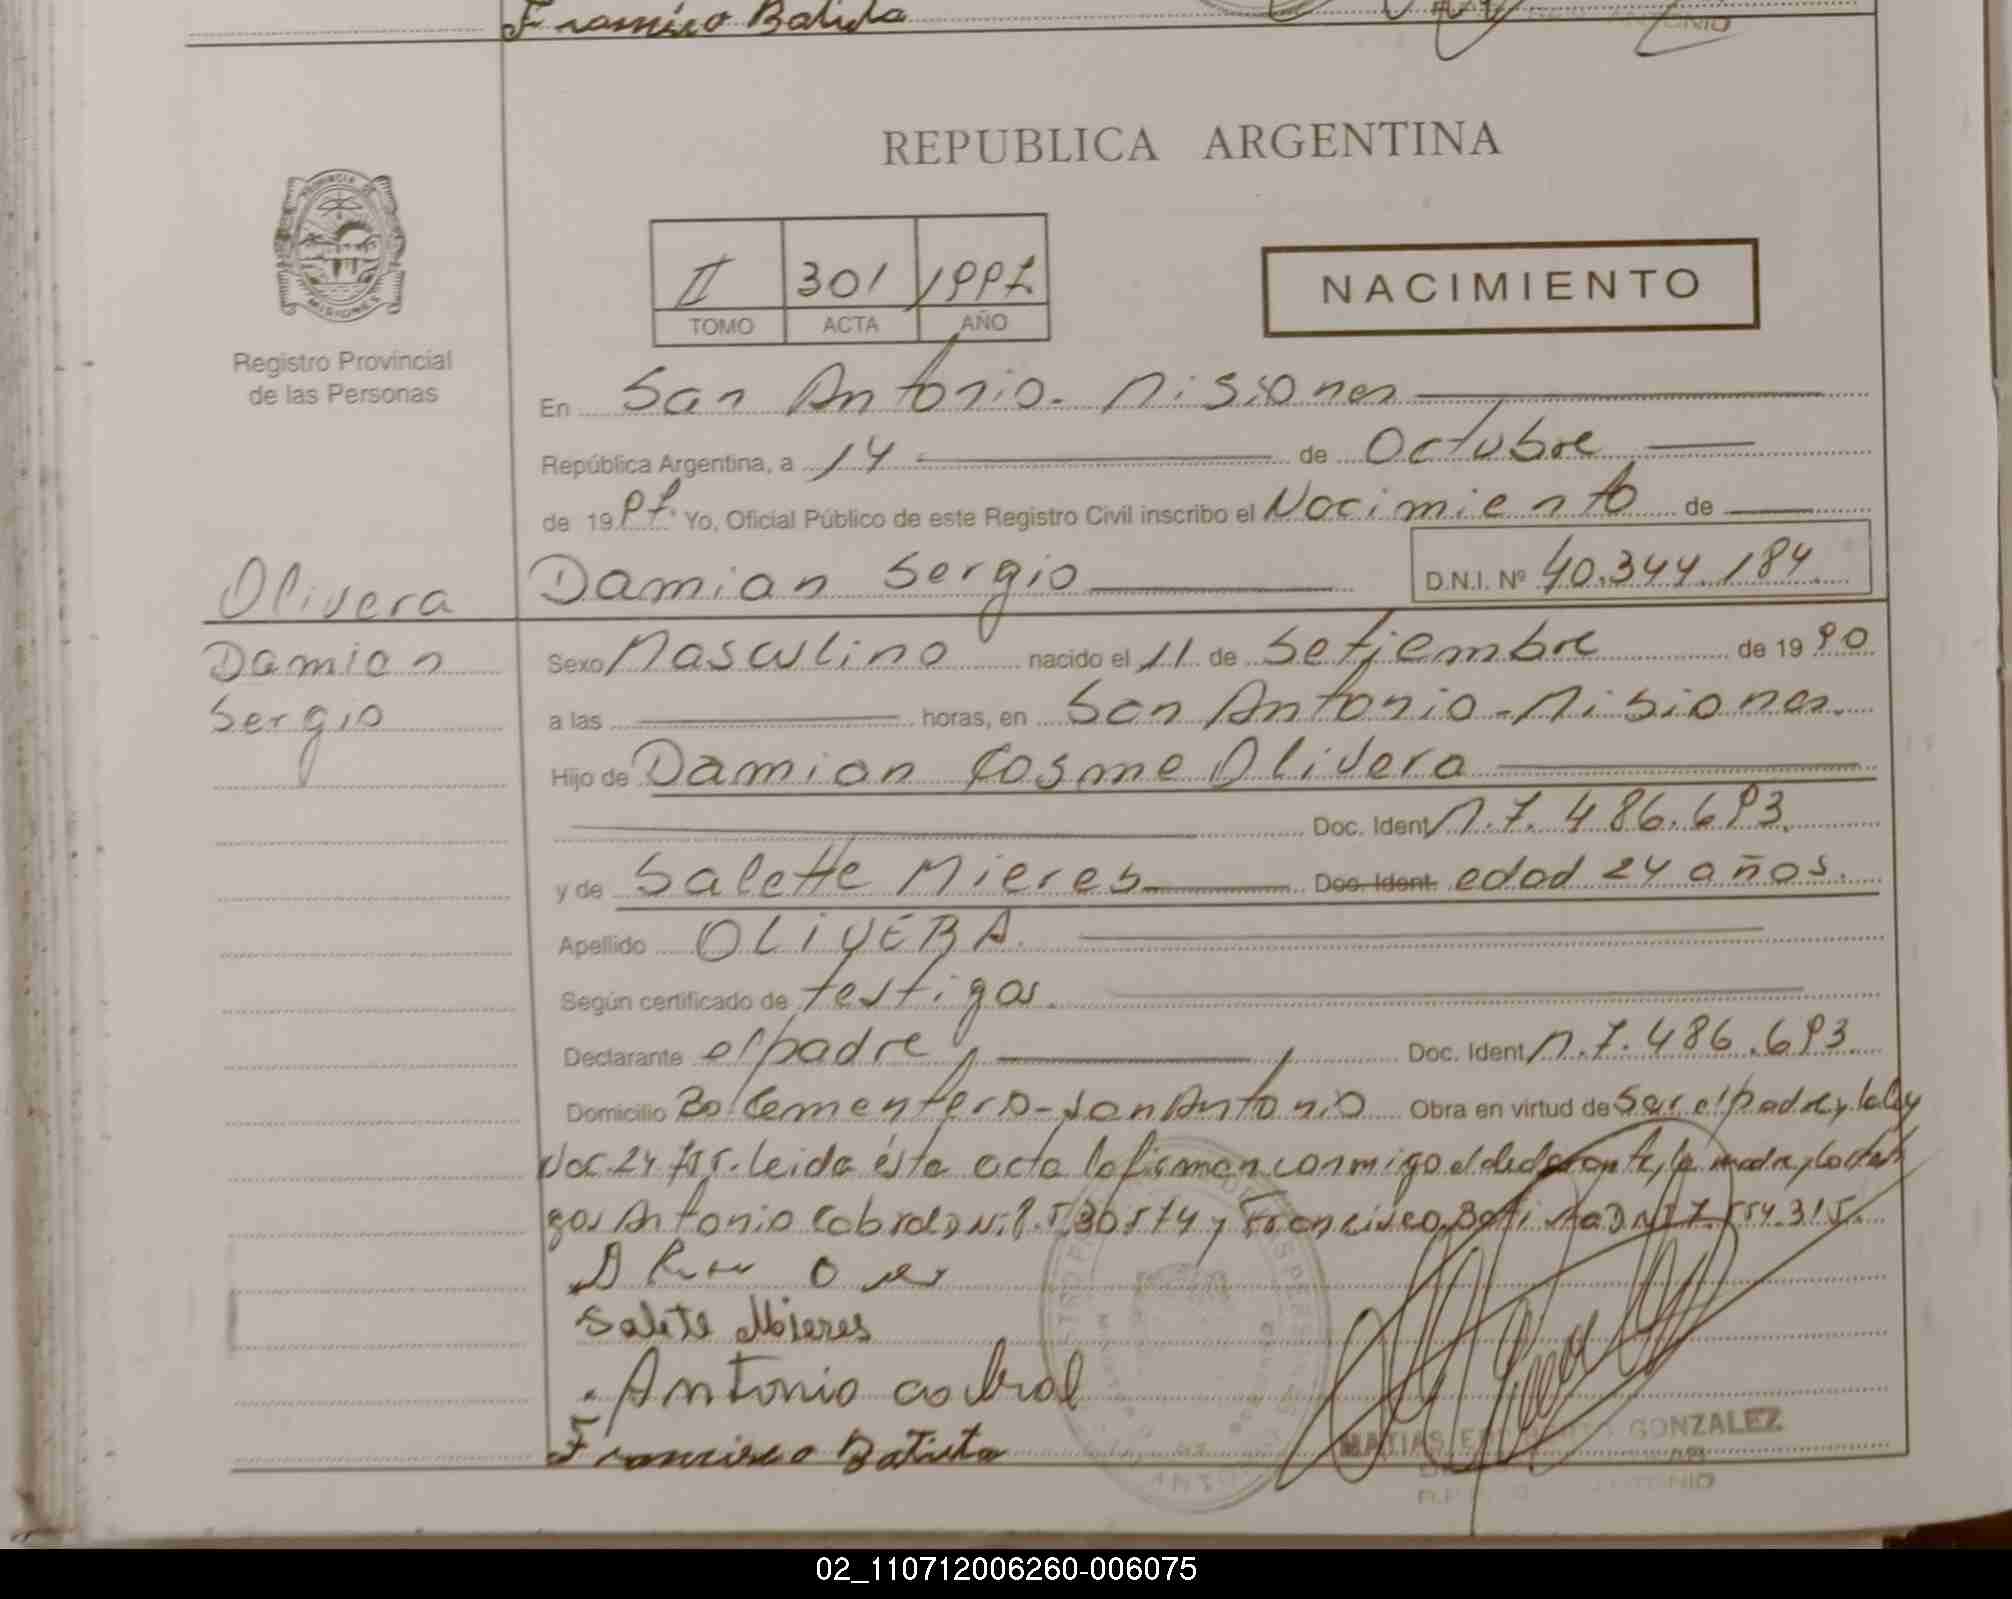 Francisco Batista
REPUBLICA ARGENTINA
PROVINCIA DE
MISIONES
Registro Provincial
de las Personas
II 301 1997
TOMO ACTA AÑO
NACIMIENTO
En San Antonio - Misiones
República Argentina, a 14 de Octubre
de 1997. Yo, Oficial Público de este Registro Civil inscribo el Nacimiento de
Olivera
Damian Sergio D.N.I. Nº 40.344.184
Damian
Sergio
Sexo Masculino nacido el 11 de Setiembre de 1990
a las horas, en San Antonio - Misiones.
Hijo de Damian Cosme Olivera
Doc. Ident M.7.486.693.
y de Salette Mieres Doc. Ident. edad 24 años.
Apellido OLIVERA
Según certificado de testigos.
Declarante el padre, Doc. Ident M.7.486.693.
Domicilio Bo Cementerio - San Antonio Obra en virtud de Ser el padre y la ley
Leida ésta acta la firman conmigo el declarante, la madre, los testi
gos Antonio Cabral y Francisco Batista DNI
Salete Mieres
Antonio cabral
Francisco Batista
MATIAS GONZALEZ
02_110712006260-006075